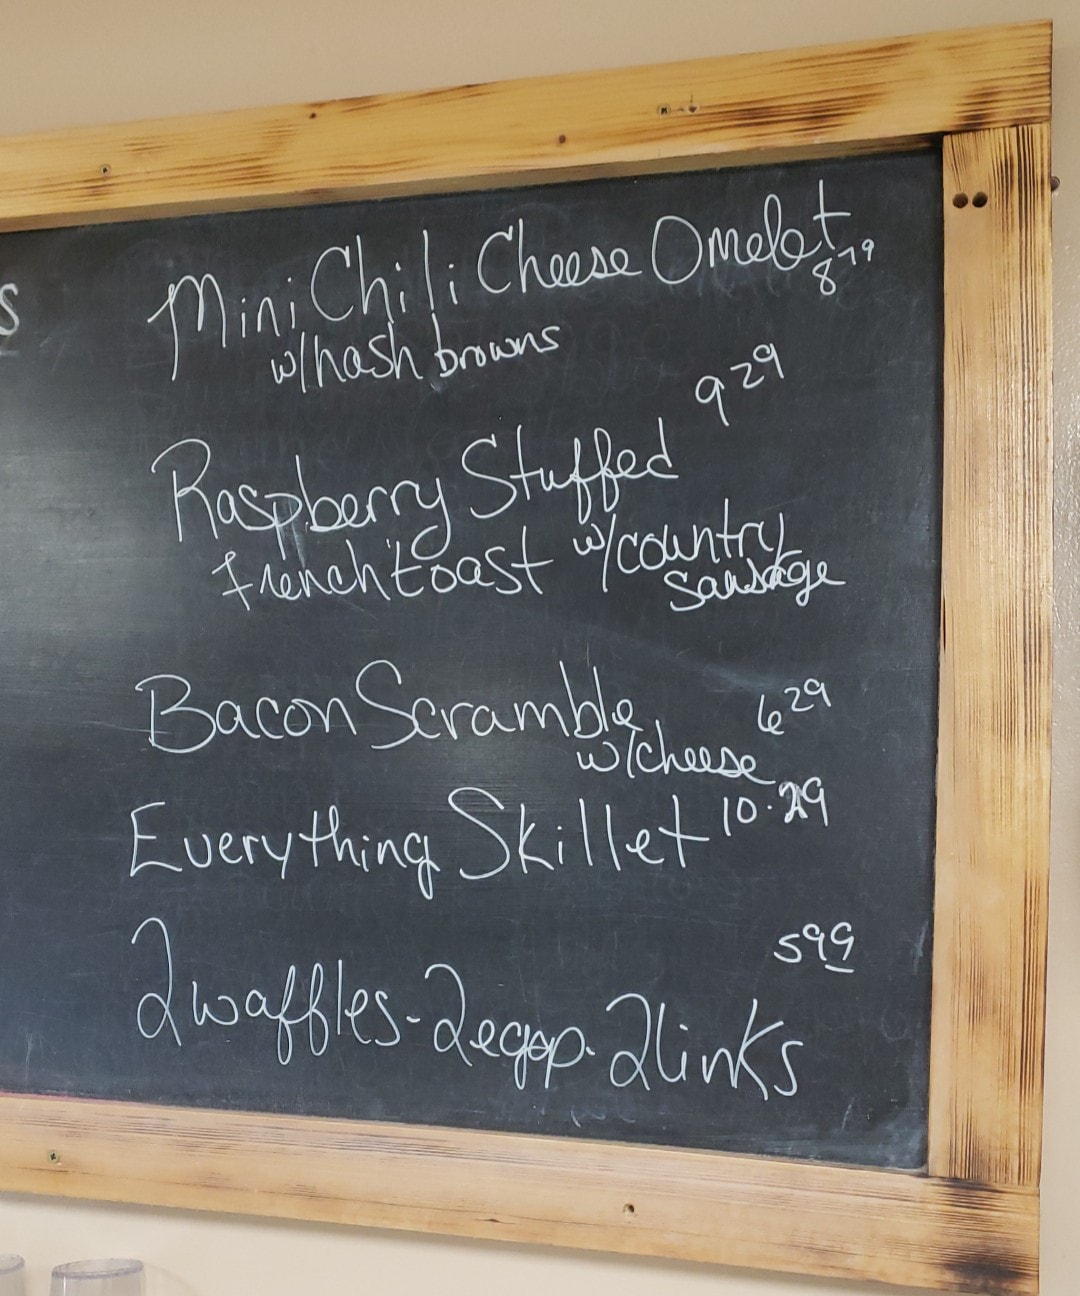 s
Mini Chili Cheese Omelet 8.79
w/hash browns
9 29
Raspberry Stuffed
french toast w/country
sausage
Bacon Scramble 6 29
w/cheese
Everything Skillet 10.29
5 99
2 waffles - 2 eggs - 2 links